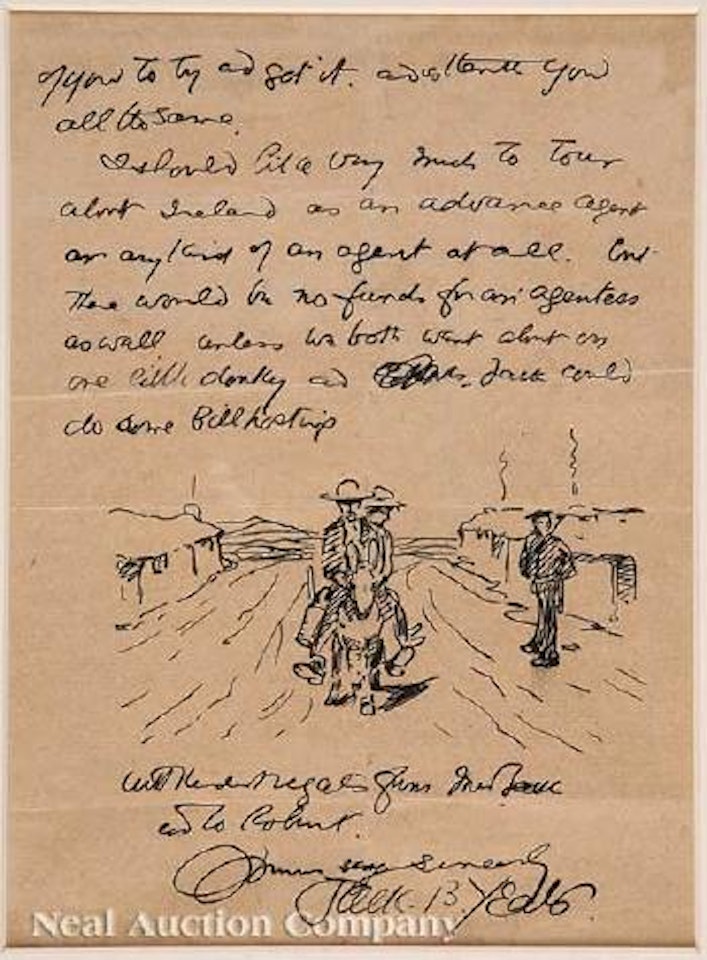 of you to try ad get it. ad I thank you
all the same.
I should like very much to tour
about Ireland as an advance agent
or any kind of an agent at all. But
there would be no funds for an agentess
as well unless we both went about on
one little donkey ad Jack could
do some Billposting
With kindest regards from Mrs Jack
ad to Robert.
Yours very sincerely
Jack. B Yeats.
Neal Auction Company